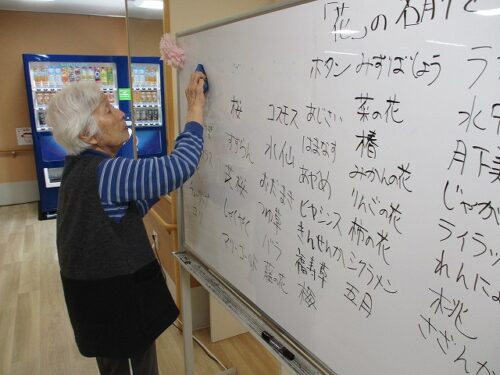 「花」の名前
ボタン みずばしょう ラ
桜 コスモス あじさい 菜の花 水
すずらん 水仙 はまなす 椿 月下
芝桜 おだまき あやめ みかんの花 じゃが
しゃくやく つゆ草 ヒヤシンス りんごの花 ライラッ
マリーゴールド バラ きんせんか 柿の花 れんに
菊の花 福寿草 シクラメン 桃
梅 五月 さざんか